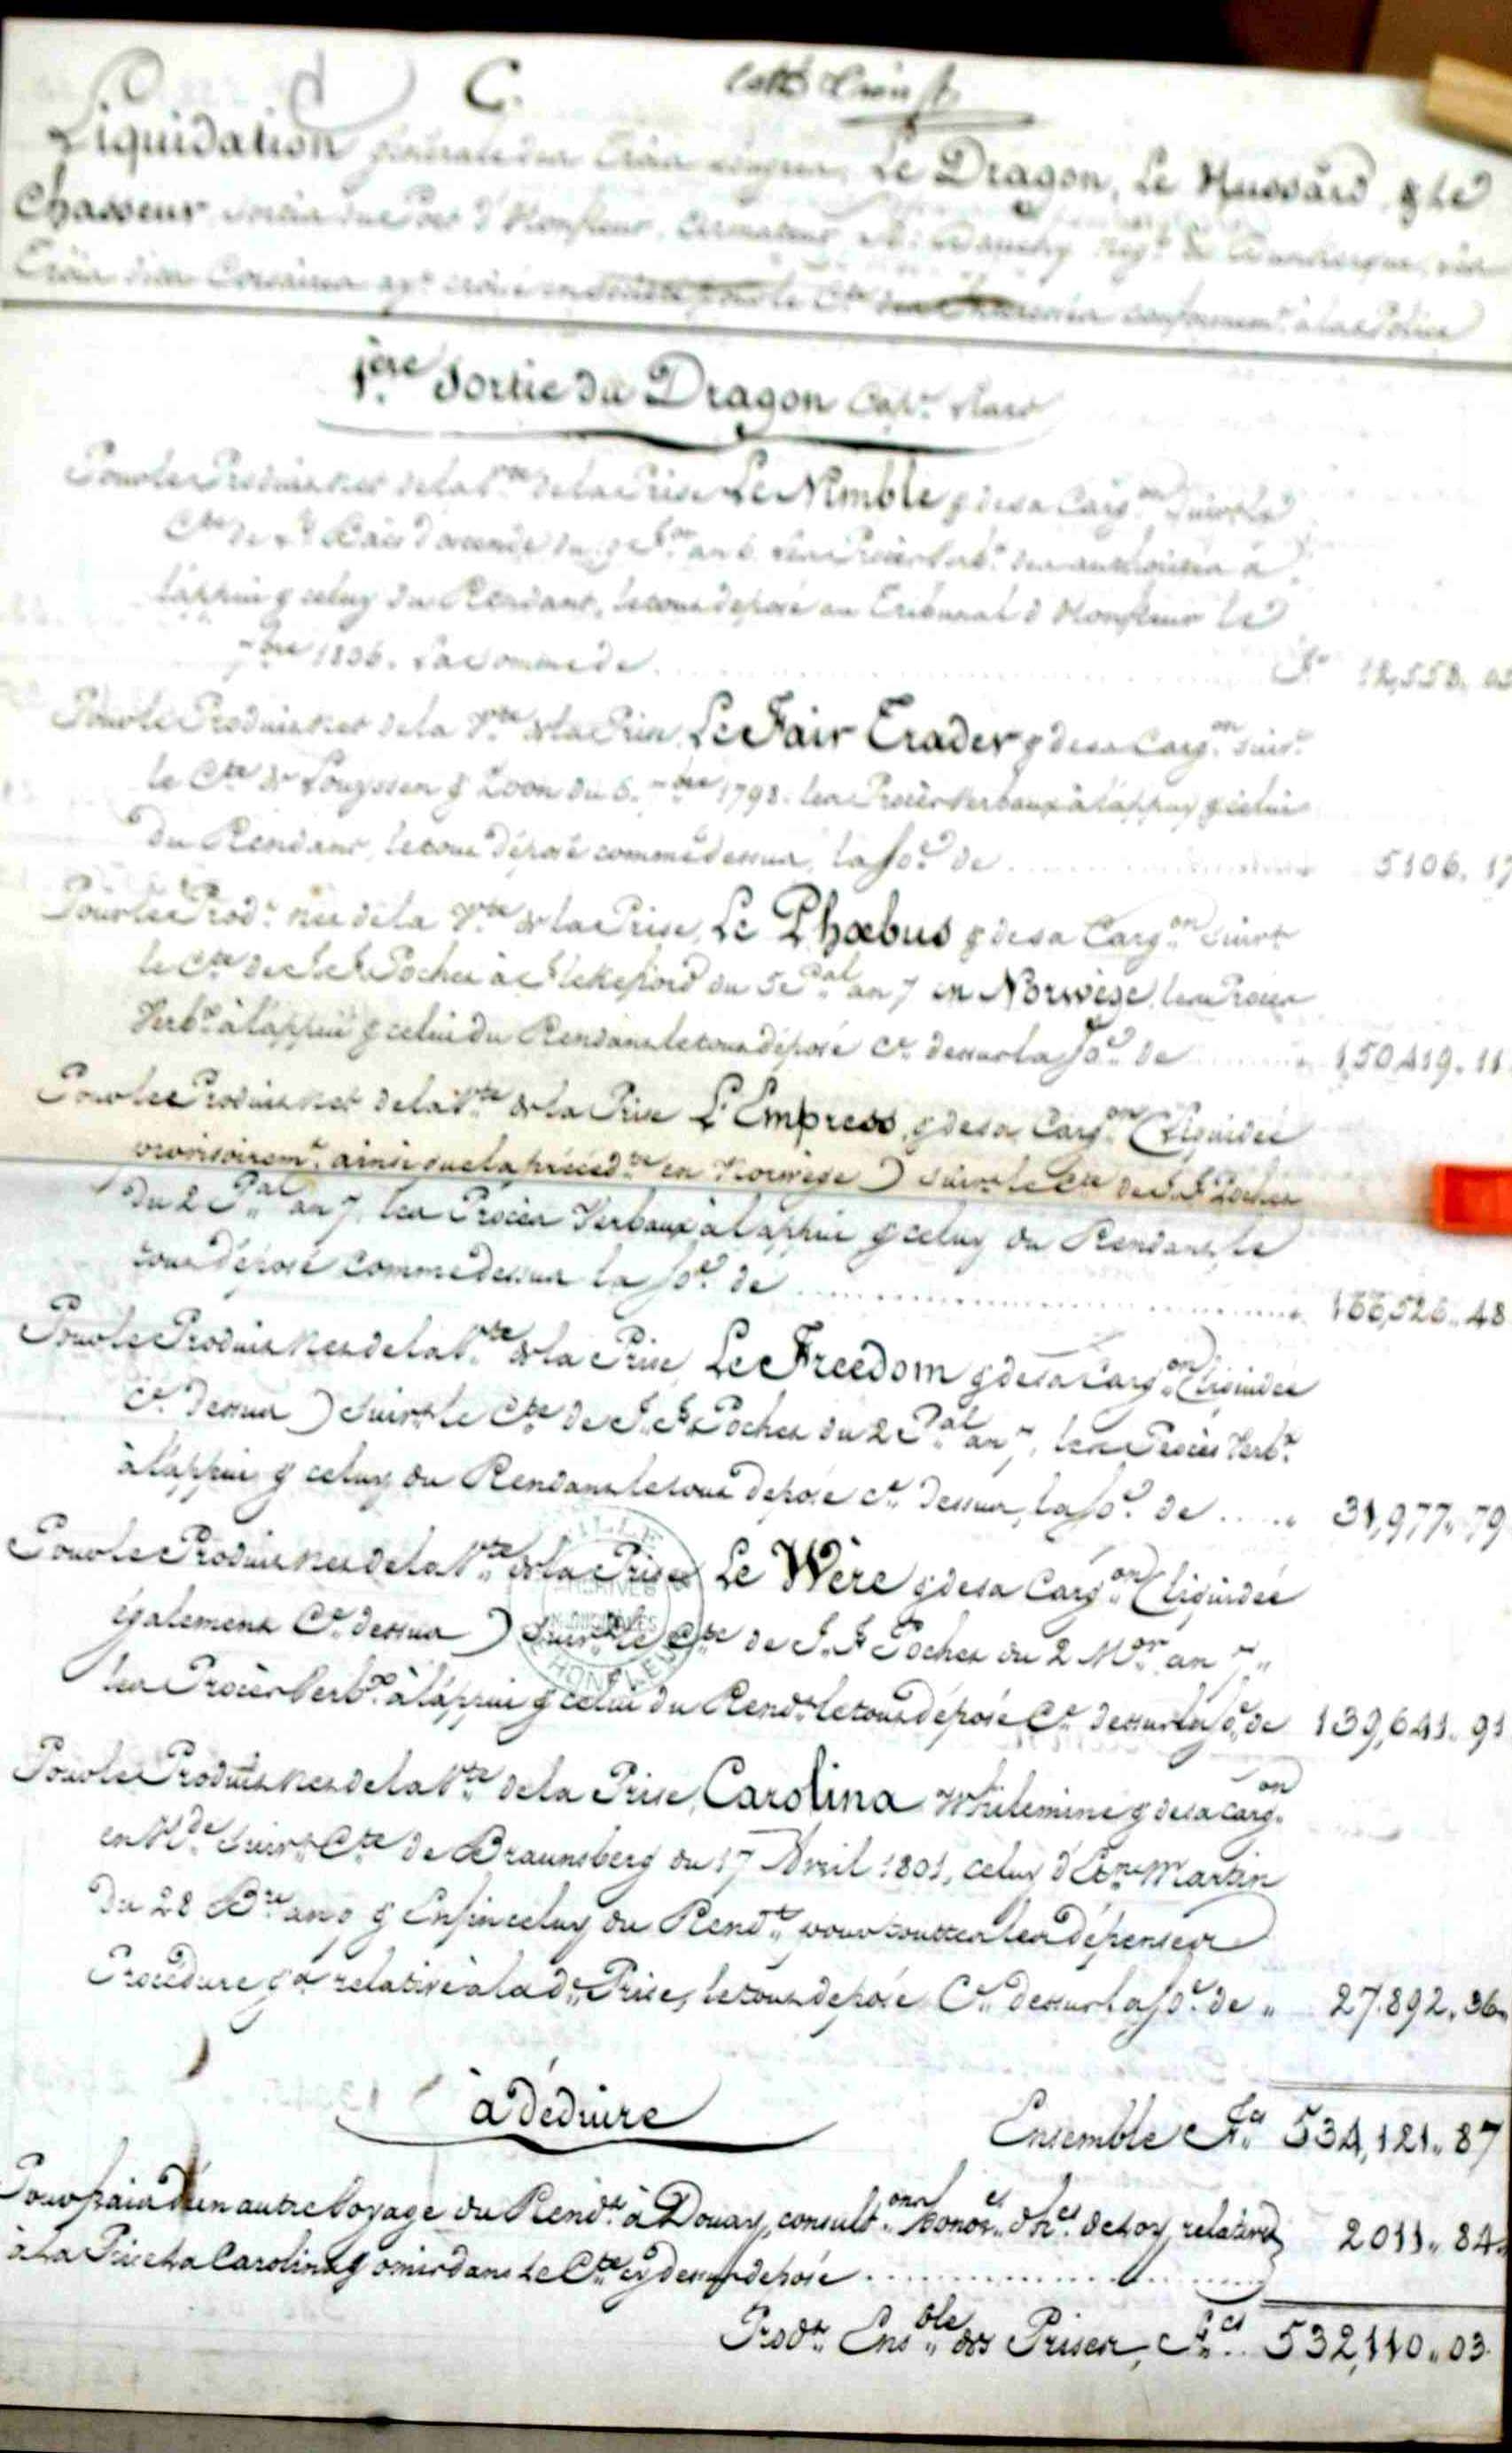 C.
Liquidation générale des Trois Longres, Le Dragon, Le Hussard, & Le
Chasseur, sortis du Port d'Honfleur, Armateur, M. Dauchy Neg.t de Dunkerque, les
Trois dits Corsaires ay.t croisé en Société pour le C.te des Interessés conformem.t à la Police
1.ère Sortie du Dragon Cap.ne
Pour le Produit net de la V.te de la Prise Le Nimble & de sa Carg.on suiv.t le
C.te de d'ostende du an 6. les Procès Verb.x des autorités à
l'appui & celuy du Rendant, le tout déposé au Tribunal d'Honfleur le
7bre 1806. La Somme de F.cs 12,558. 05
Pour le Produit net de la V.te de la Prise Le Fair Trader & de sa Carg.on suiv.t
le C.te de & Zoon du 6. 7bre 1798. les Procès Verbaux à l'appuy & celui
du Rendant, le tout déposé comme dessus, la So.e de 5106. 17
Pour le Prod.t net de la V.te de la Prise, Le Phœbus & de sa Carg.on Suiv.t
le C.te de J. F. Pochez à Flekefiord du 5 P.al an 7 en Norwège, les Procès
Verb.x à l'appui & celui du Rendant le tout déposé c.e dessus la So.e de 150,419. 11
Pour le Produit net de la V.te de la Prise L'Empress, & de sa Carg.on (Liquidée
provisoirem.t ainsi que la précéd.te en Norwège) suiv.t le C.te de J. F. Pochez
du 2 P.al an 7, les Procès Verbaux à l'appui & celuy du Rendant, le
tout déposé comme dessus la So.e de 166,526.. 48
Pour le Produit net de la V.te de la Prise, Le Freedom & de sa Carg.on (liquidée
c.e dessus) suiv.t le C.te de J. F. Pochez du 2 P.al an 7, les Procès Verb.x
à l'appui & celuy du Rendant le tout déposé c.e dessus, la So.e de 31,977.. 79
Pour le Produit net de la V.te de la Prise Le Wère & de sa Carg.on (liquidée
également C.e dessus) suiv.t le C.te de J. F. Pochez du 2 M.or an 7
les Procès Verb.x à l'appui & celui du Rend.t le tout déposé C.e dessus la So.e de 139,641.. 91
Pour le Produit net de la V.te de la Prise, Carolina Whilemine & de sa carg.on
en H.de Suiv.t C.te de Braunsberg du 17 Avril 1801, celuy d'Et.ne Martin
du 28 B.re an 9 & Enfin celuy du Rend.t pour toutes les dépenses
Procédure &.a relative à la d.te Prise, le tout déposé C.e dessus la So.e de 27.892. 36
à déduire
Ensemble F.cs 534,121.. 87
Pour frais d'un autre Voyage du Rend.t à Douay, consult.ons honor.es relatives
à la Prise La Carolina & omis dans le C.te cy dessus déposé 2011.. 84
Prod.t Ens.ble des Prises, F.cs 532,110.. 03
VILLE
ARCHIVES
HONFLEUR